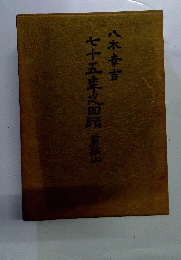 八木幸吉
七十五年之回顧